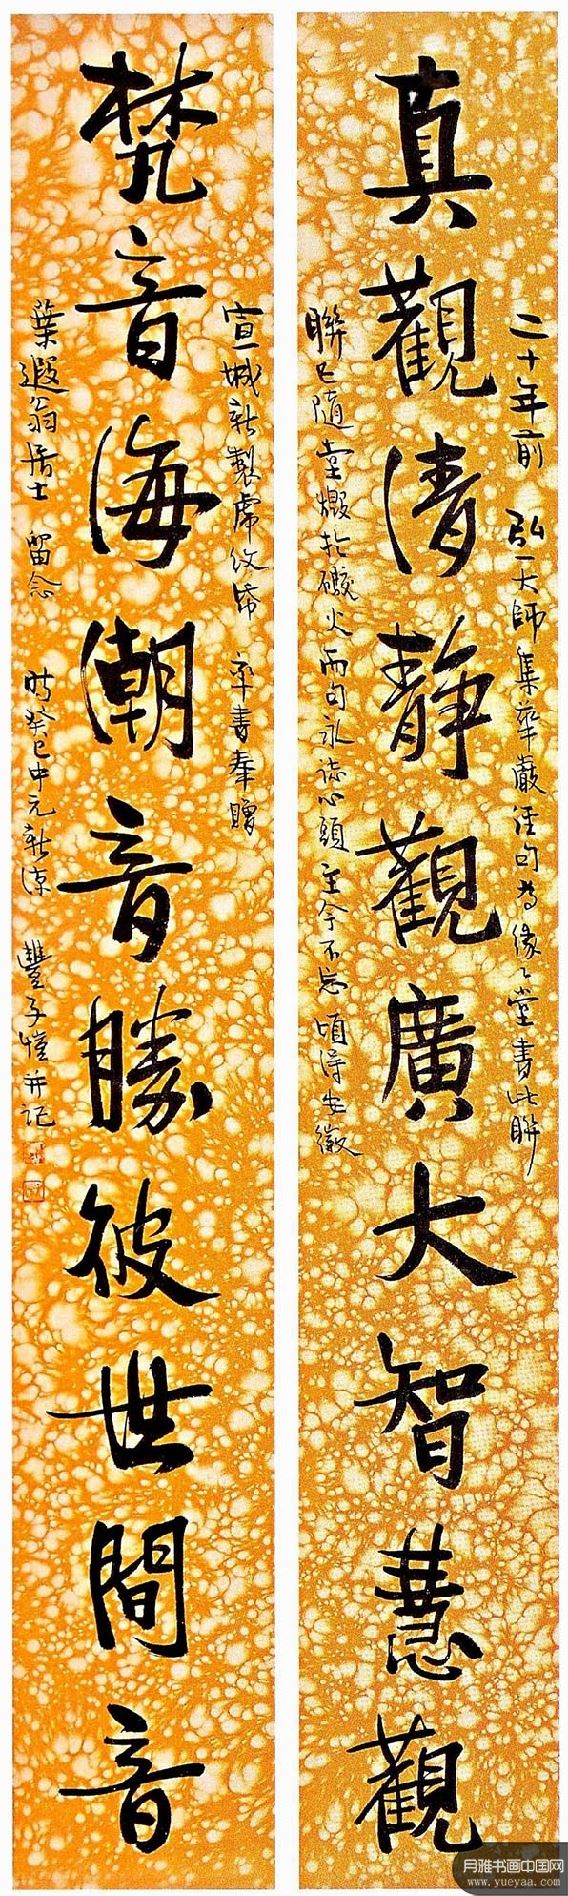 真觀清靜觀廣大智慧觀
二十年前 弘一大師集華嚴經句為緣緣堂書此聯
聯已隨堂燬於礮火而句永誌心頭至今不忘頃得安徽
梵音海潮音勝彼世間音
宣城新製虎紋箋 率書奉贈
葉遐翁居士 留念 時癸巳中元新涼 豐子愷并記
月雅书画中国网
www.yueyaa.com